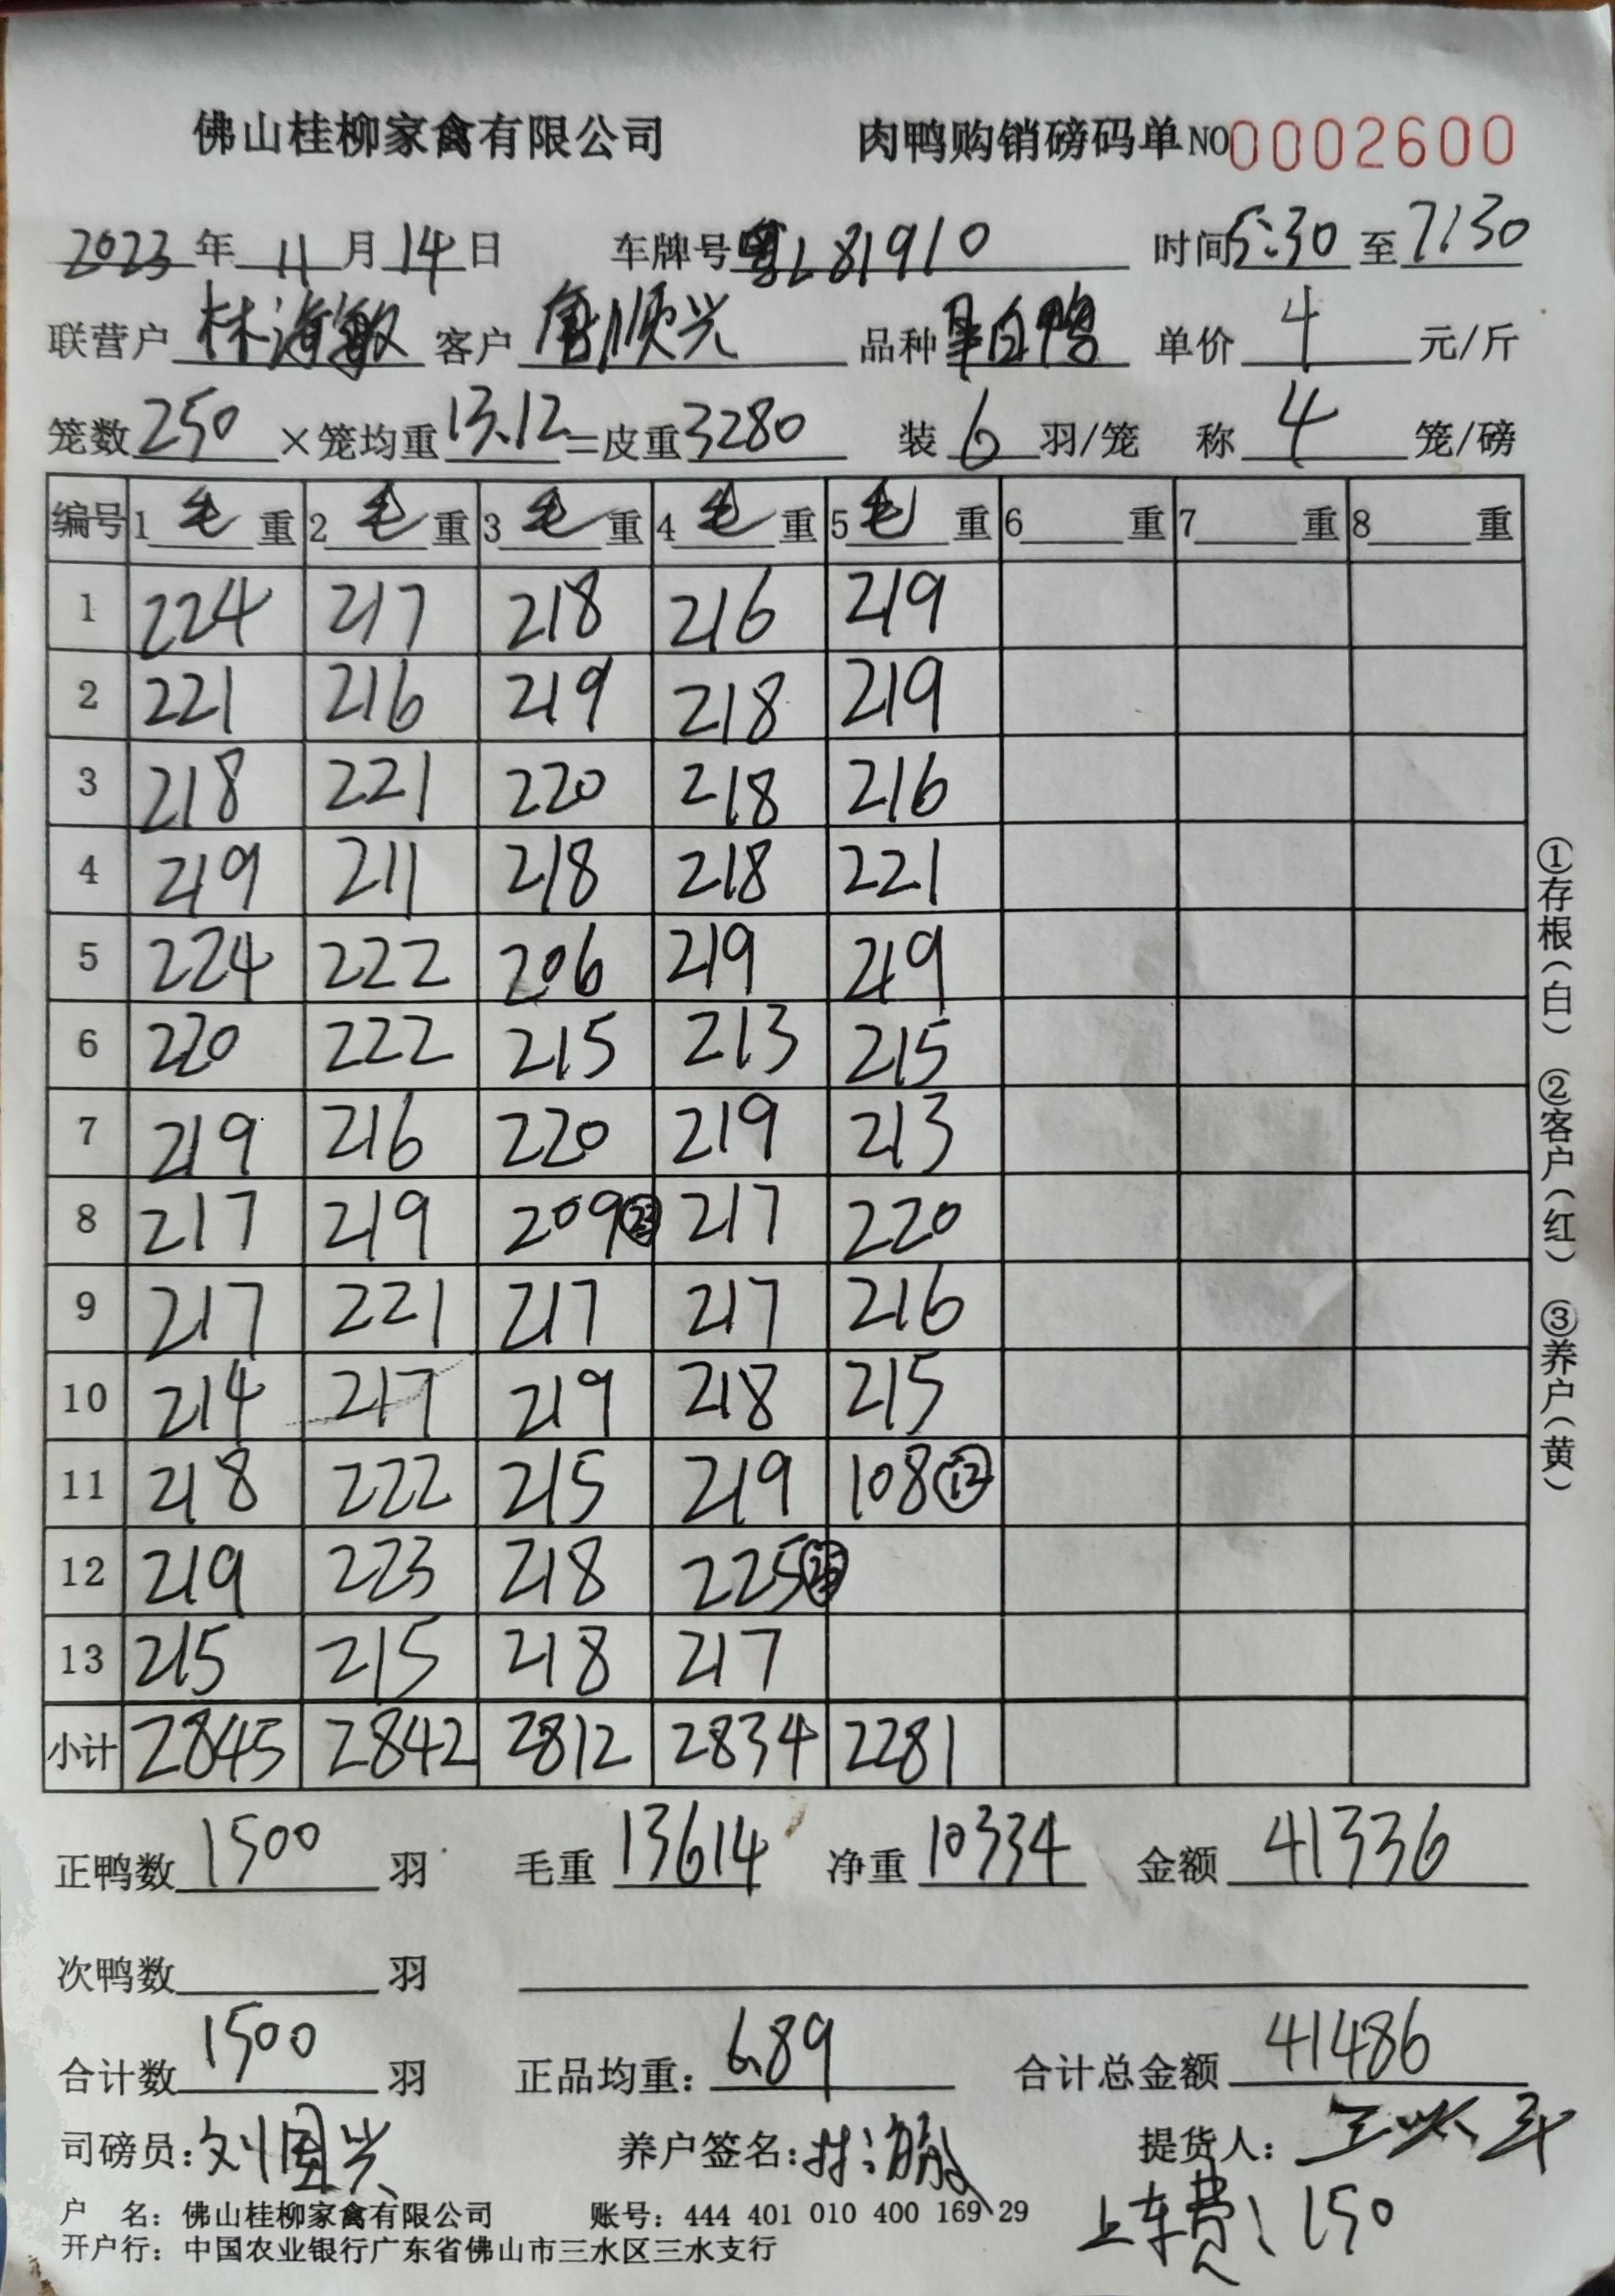 佛山桂柳家禽有限公司 肉鸭购销磅码单NO0002600
2023年11月14日 车牌号粤L81910 时间5:30至7:30
联营户林海敏 客户 顺兴 品种 白鸭 单价4元/斤
笼数250×笼均重13.12=皮重3280 装6羽/笼 称4笼/磅
编号 1毛重 2毛重 3毛重 4毛重 5毛重 6重 7重 8重
1 224 217 218 216 219
2 221 216 219 218 219
3 218 221 220 218 216
4 219 211 218 218 221
5 224 222 206 219 219
6 220 222 215 213 215
7 219 216 220 219 213
8 217 219 209㉓ 217 220
9 217 221 217 217 216
10 214 217 219 218 215
11 218 222 215 219 108⑫
12 219 223 218 225㉕
13 215 215 218 217
小计 2845 2842 2812 2834 2281
正鸭数1500羽 毛重13614 净重10334 金额41336
次鸭数 羽
合计数1500羽 正品均重：6.89 合计总金额41486
司磅员：刘国兴 养户签名：林海敏 提货人：
户 名：佛山桂柳家禽有限公司 账号：444 401 010 400 169 29
开户行：中国农业银行广东省佛山市三水区三水支行
上车费：150
①存根（白） ②客户（红） ③养户（黄）